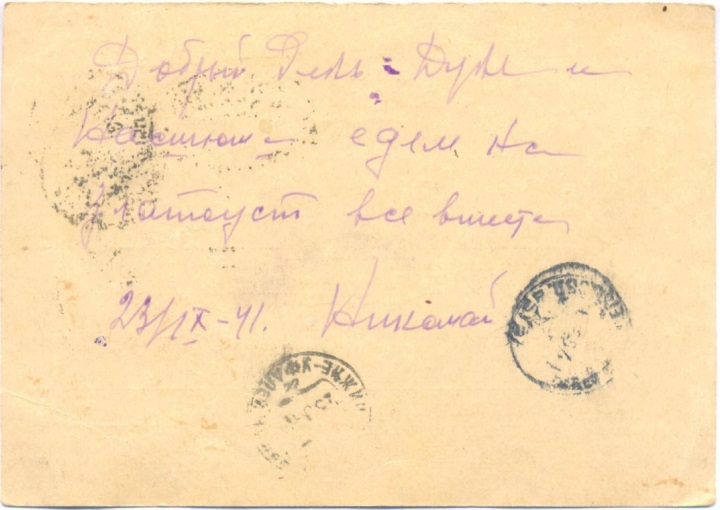 Добрый День Дуся и
Настюша едем на
Златоуст все вместе
23/IX-41. Николай
НИЖНЕ-УФАЛЕЙ